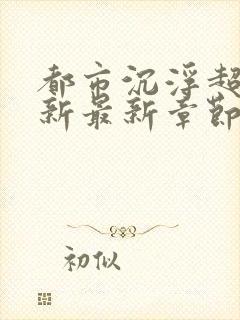 都市沉浮超
新最新章節
初似